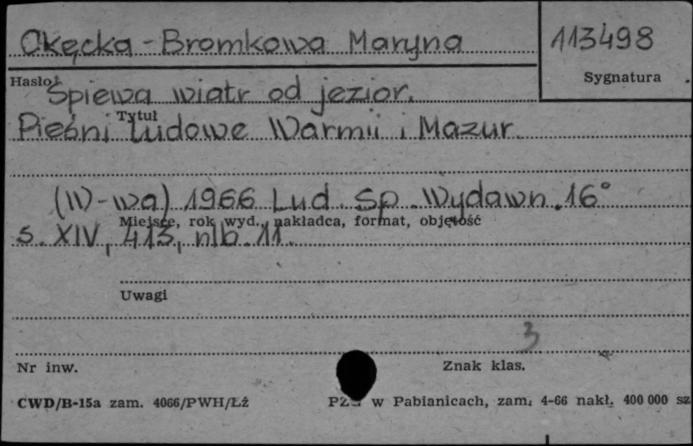 Okęcka-Bromkowa Maryna
113498
Hasło
Sygnatura
Śpiewa wiatr od jezior.
Tytuł
Pieśni ludowe Warmii i Mazur.
(W-wa) 1966 Lud. Sp. Wydawn. 16°
Miejsce, rok wyd., nakładca, format, objętość
s. XIV, 413, nlb. 11.
Uwagi
3
Nr inw.
Znak klas.
CWD/B-15a zam. 4066/PWH/Łź
w Pabianicach, zam. 4-66 nakł. 400 000 sz